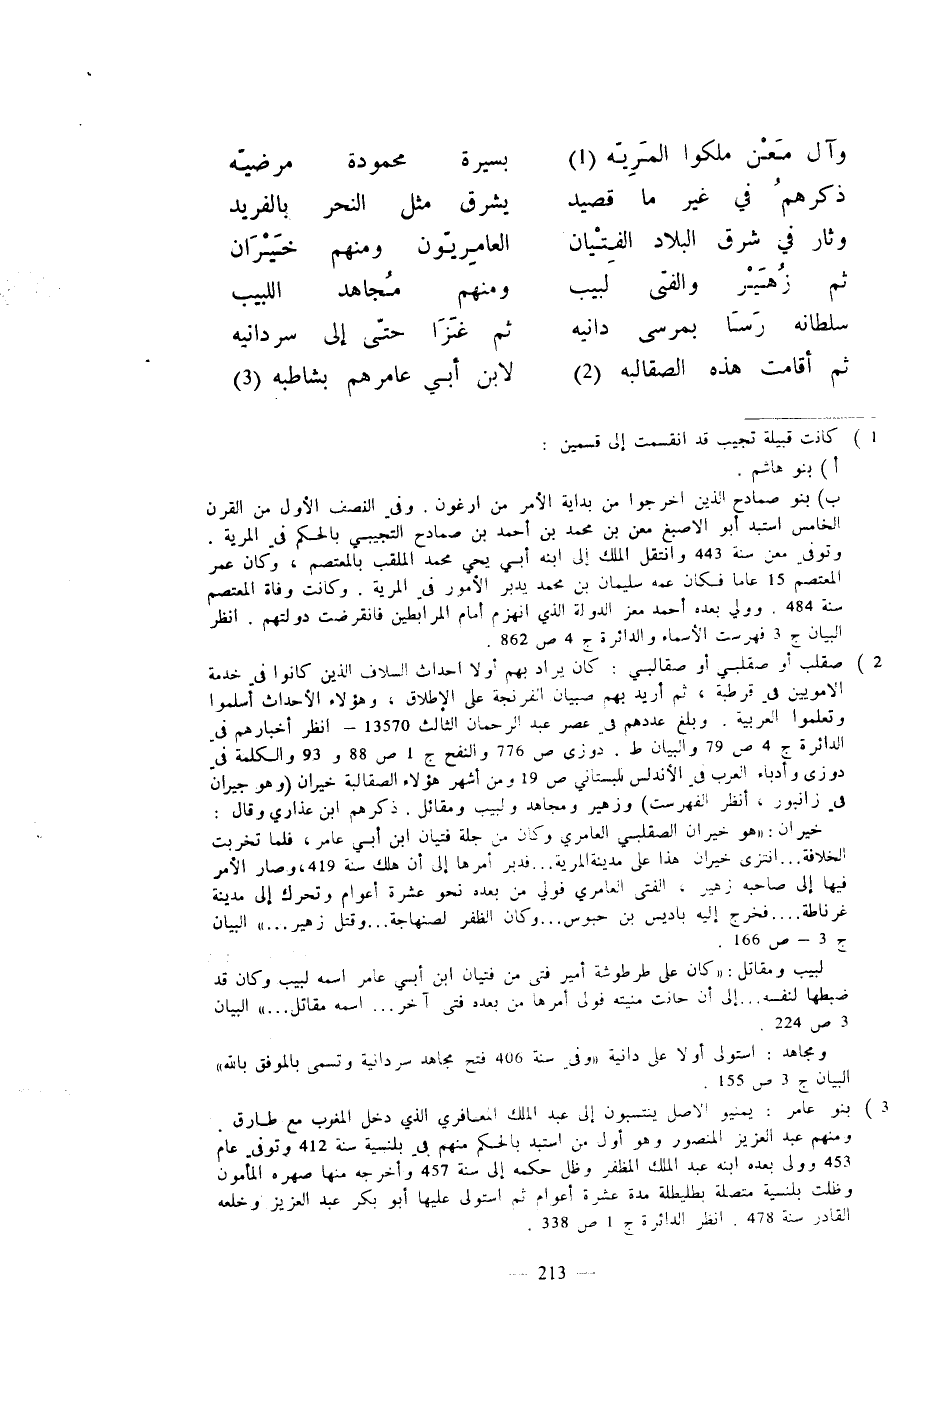 وآل مَعْن ملكوا المَرِيّه (1) بسيرة محمودة مرضيّه
ذكرهمُ في غير ما قصيد يشرق مثل النحر بالفريد
وثار في شرق البلاد الفِتْيان العامِريّون ومنهم خَيْرَان
ثم زُهَيْر والفتى لبيب ومنهم مُجاهد اللبيب
سلطانه رَسَا بمرسى دانيه ثم غَزَا حتّى إلى سردانيه
ثم أقامت هذه الصقالبه (2) لابن أبي عامرهم بشاطبه (3)
1 ) كانت قبيلة تجيب قد انقسمت إلى قسمين :
أ ) بنو هاشم .
ب) بنو صمادح الذين اخرجوا من بداية الأمر من ارغون . وفي النصف الأول من القرن
الخامس استبد أبو الاصبغ معن بن محمد بن أحمد بن صمادح التجيبي بالحكم في المرية .
وتوفي معن سنة 443 وانتقل الملك إلى ابنه أبي يحي محمد الملقب بالمعتصم ، وكان عمر
المعتصم 15 عاما فكان عمه سليمان بن محمد يدبر الأمور في المرية . وكانت وفاة المعتصم
سنة 484 . وولي بعده أحمد معز الدولة الذي انهزم أمام المرابطين فانقرضت دولتهم . انظر
البيان ج 3 فهرست الأسماء والدائرة ج 4 ص 862 .
2 ) صقلب أو صقلبي أو صقالبي : كان يراد بهم أولا احداث السلاف الذين كانوا في خدمة
الامويين في قرطبة ، ثم أريد بهم صبيان الفرنجة على الإطلاق ، وهؤلاء الأحداث أسلموا
وتعلموا العربية . وبلغ عددهم في عصر عبد الرحمان الثالث 13570 – انظر أخبارهم في
الدائرة ج 4 ص 79 والبيان ط . دوزى ص 776 والنفح ج 1 ص 88 و 93 والكلمة في
دوزى وأدباء العرب في الأندلس للبستاني ص 19 ومن أشهر هؤلاء الصقالبة خيران (وهو جيران
في زانبور ، أنظر الفهرست) وزهير ومجاهد ولبيب ومقاتل . ذكرهم ابن عذاري وقال :
خيران : «هو خيران الصقلبي العامري وكان من جلة فتيان ابن أبي عامر ، فلما تخربت
الخلافة...انتزى خيران هذا على مدينةالمرية...فدبر أمرها إلى أن هلك سنة 419،وصار الأمر
فيها إلى صاحبه زهير ، الفتى العامري فولي من بعده نحو عشرة أعوام وتحرك إلى مدينة
غرناطة....فخرج إليه باديس بن حبوس...وكان الظفر لصنهاجة...وقتل زهير...» البيان
ج 3 – ص 166 .
لبيب ومقاتل : «كان على طرطوشة أمير فتى من فتيان ابن أبي عامر اسمه لبيب وكان قد
ضبطها لنفسه...إلى أن حانت منيته فولى أمرها من بعده فتى آخر... اسمه مقاتل...» البيان
3 ص 224 .
ومجاهد : استولى أولا على دانية «وفي سنة 406 فتح مجاهد سردانية وتسمى بالموفق بالله»
البيان ج 3 ص 155 .
3 ) بنو عامر : يمنيو الاصل ينتسبون إلى عبد الملك المعافري الذي دخل المغرب مع طارق .
ومنهم عبد العزيز المنصور وهو أول من استبد بالحكم منهم في بلنسية سنة 412 وتوفي عام
453 وولى بعده ابنه عبد الملك المظفر وظل حكمه إلى سنة 457 وأخرجه منها صهره المأمون
وظلت بلنسية متصلة بطليطلة مدة عشرة أعوام ثم استولى عليها أبو بكر عبد العزيز وخلعه
القادر سنة 478 . انظر الدائرة ج 1 ص 338 .
— 213 —